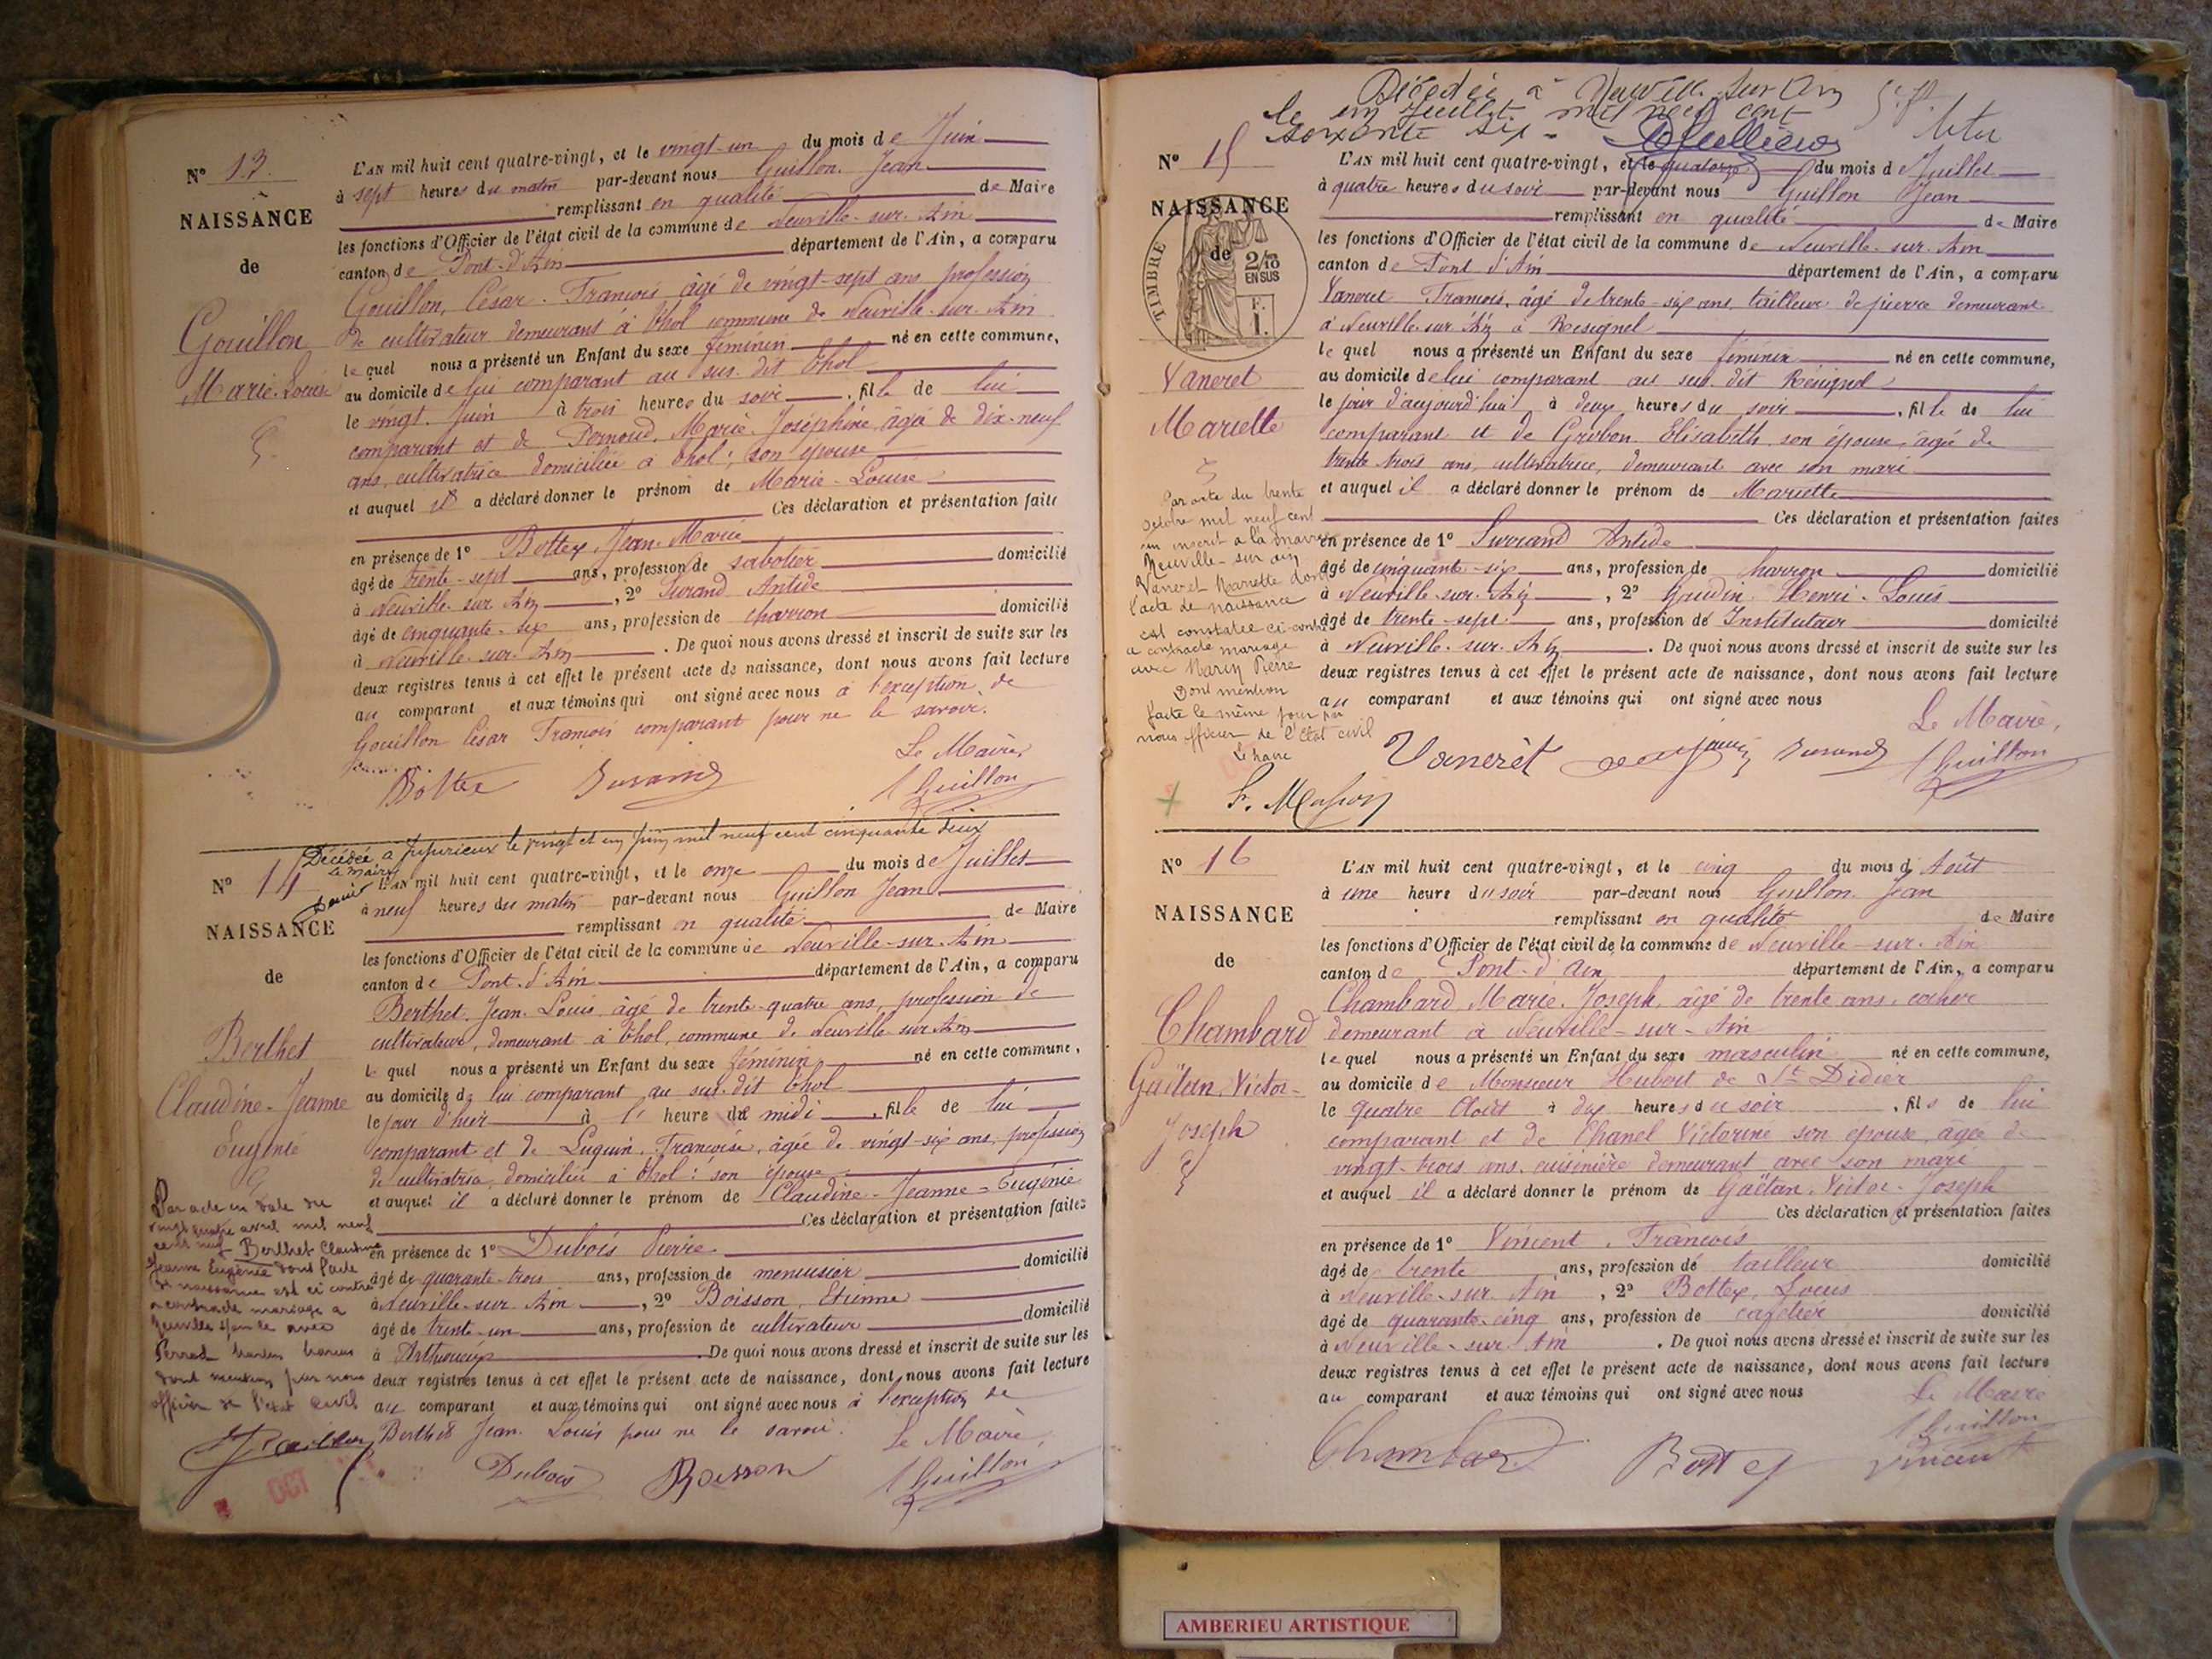 N° 13.
NAISSANCE
de
Gouillon
Marie-Louise
L'AN mil huit cent quatre-vingt, et le vingt-un du mois de Juin
à sept heures du matin par-devant nous Guillon Jean
remplissant en qualité de Maire
les fonctions d'Officier de l'état civil de la commune de Neuville-sur-Ain
canton de Pont-d'Ain département de l'Ain, a comparu
Gouillon, César-François âgé de vingt-sept ans profession
de cultivateur demeurant à Thol commune de Neuville-sur-Ain
lequel nous a présenté un Enfant du sexe féminin né en cette commune,
au domicile de lui comparant au sus-dit Thol
le vingt Juin à trois heures du soir, fille de lui
comparant et de Pernoud, Marie-Joséphine, âgée de dix-neuf
ans, cultivatrice domiciliée à Thol; son épouse
et auquel il a déclaré donner le prénom de Marie-Louise
Ces déclaration et présentation faite
en présence de 1° Bottex, Jean-Marie
âgé de trente-sept ans, profession de sabotier domicilié
à Neuville-sur-Ain, 2° Surand Antide
âgé de cinquante-six ans, profession de charron domicilié
à Neuville-sur-Ain. De quoi nous avons dressé et inscrit de suite sur les
deux registres tenus à cet effet le présent acte de naissance, dont nous avons fait lecture
au comparant et aux témoins qui ont signé avec nous à l'exception de
Gouillon César François comparant pour ne le savoir.
Le Maire,
Bottex Surand Guillon
Décédée à Jujurieux le vingt et un Juin mil neuf cent cinquante deux
Le Maire
N° 14
NAISSANCE
de
Berthet
Claudine-Jeanne
Eugénie
L'AN mil huit cent quatre-vingt, et le onze du mois de Juillet
à neuf heures du matin par-devant nous Guillon Jean
remplissant en qualité de Maire
les fonctions d'Officier de l'état civil de la commune de Neuville-sur-Ain
canton de Pont-d'Ain département de l'Ain, a comparu
Berthet Jean-Louis âgé de trente-quatre ans, profession de
cultivateur, demeurant à Thol, commune de Neuville-sur-Ain
lequel nous a présenté un Enfant du sexe féminin né en cette commune,
au domicile de lui comparant au sus-dit Thol
le jour d'hier à heure du midi, fille de lui
comparant et de Luquin, Françoise, âgée de vingt-six ans, profession
de cultivatrice, domiciliée à Thol: son épouse
et auquel il a déclaré donner le prénom de Claudine-Jeanne-Eugénie
Ces déclaration et présentation faites
en présence de 1° Dubois Pierre
âgé de quarante-trois ans, profession de menuisier domicilié
à Neuville-sur-Ain, 2° Boisson, Etienne
âgé de trente-un ans, profession de cultivateur domicilié
à De quoi nous avons dressé et inscrit de suite sur les
deux registres tenus à cet effet le présent acte de naissance, dont nous avons fait lecture
au comparant et aux témoins qui ont signé avec nous à l'exception de
Berthet Jean-Louis pour ne le savoir. Le Maire,
Dubois Boisson Guillon
Par acte en date du
vingt quatre avril mil neuf
cent neuf Berthet Claudine
Jeanne Eugénie dont l'acte
de naissance est ci contre
a contracté mariage à
avec
dont mention par nous
officier de l'état civil
OCT
Décédée à Neuville sur Ain
le un Juillet mil neuf cent
soixante six
N° 15
NAISSANCE
de
TIMBRE
2/10
EN SUS
F.
1.
Vaneret
Mariette
L'AN mil huit cent quatre-vingt, et le quatorze du mois de Juillet
à quatre heures du soir par-devant nous Guillon Jean
remplissant en qualité de Maire
les fonctions d'Officier de l'état civil de la commune de Neuville-sur-Ain
canton de Pont d'Ain département de l'Ain, a comparu
Vaneret François, âgé de trente-six ans, tailleur de pierre demeurant
à Neuville-sur-Ain à Résignel
lequel nous a présenté un Enfant du sexe féminin né en cette commune,
au domicile de lui comparant au sus-dit Résignel
le jour d'aujourd'hui à deux heures du soir, fille de lui
comparant et de Grobon Elisabeth son épouse, âgée de
trente trois ans, cultivatrice, demeurant avec son mari
et auquel il a déclaré donner le prénom de Mariette
Ces déclaration et présentation faites
en présence de 1° Surand Antide
âgé de cinquante-six ans, profession de charron domicilié
à Neuville-sur-Ain, 2° Henri-Louis
âgé de trente-sept ans, profession de Instituteur domicilié
à Neuville-sur-Ain. De quoi nous avons dressé et inscrit de suite sur les
deux registres tenus à cet effet le présent acte de naissance, dont nous avons fait lecture
au comparant et aux témoins qui ont signé avec nous
Le Maire,
Vaneret Surand Guillon
Par acte du trente
octobre mil neuf cent
un inscrit à la mairie
Neuville-sur-Ain
Vaneret Mariette dont
l'acte de naissance
est constatée ci-contre
a contracté mariage
avec Pierre
Dont mention
faite le même jour par
nous officier de l'état civil
Le Maire
N° 16
NAISSANCE
de
Chambard
Gaëtan-Victor-
Joseph
L'AN mil huit cent quatre-vingt, et le cinq du mois d'Août
à une heure du soir par-devant nous Guillon Jean
remplissant en qualité de Maire
les fonctions d'Officier de l'état civil de la commune de Neuville-sur-Ain
canton de Pont-d'Ain département de l'Ain, a comparu
Chambard, Marie-Joseph, âgé de trente ans, cocher
demeurant à Neuville-sur-Ain
lequel nous a présenté un Enfant du sexe masculin né en cette commune,
au domicile de Monsieur Hubert de St Didier
le quatre Août à dix heures du soir, fils de lui
comparant et de Chanel Victorine son épouse, âgée de
vingt-trois ans, cuisinière demeurant avec son mari
et auquel il a déclaré donner le prénom de Gaëtan-Victor-Joseph
Ces déclaration et présentation faites
en présence de 1° Vincent, François
âgé de trente ans, profession de tailleur domicilié
à Neuville-sur-Ain, 2° Bottex, Louis
âgé de quarante-cinq ans, profession de cafetier domicilié
à Neuville-sur-Ain. De quoi nous avons dressé et inscrit de suite sur les
deux registres tenus à cet effet le présent acte de naissance, dont nous avons fait lecture
au comparant et aux témoins qui ont signé avec nous Le Maire
Guillon
Chambard Bottex Vincent
AMBERIEU ARTISTIQUE